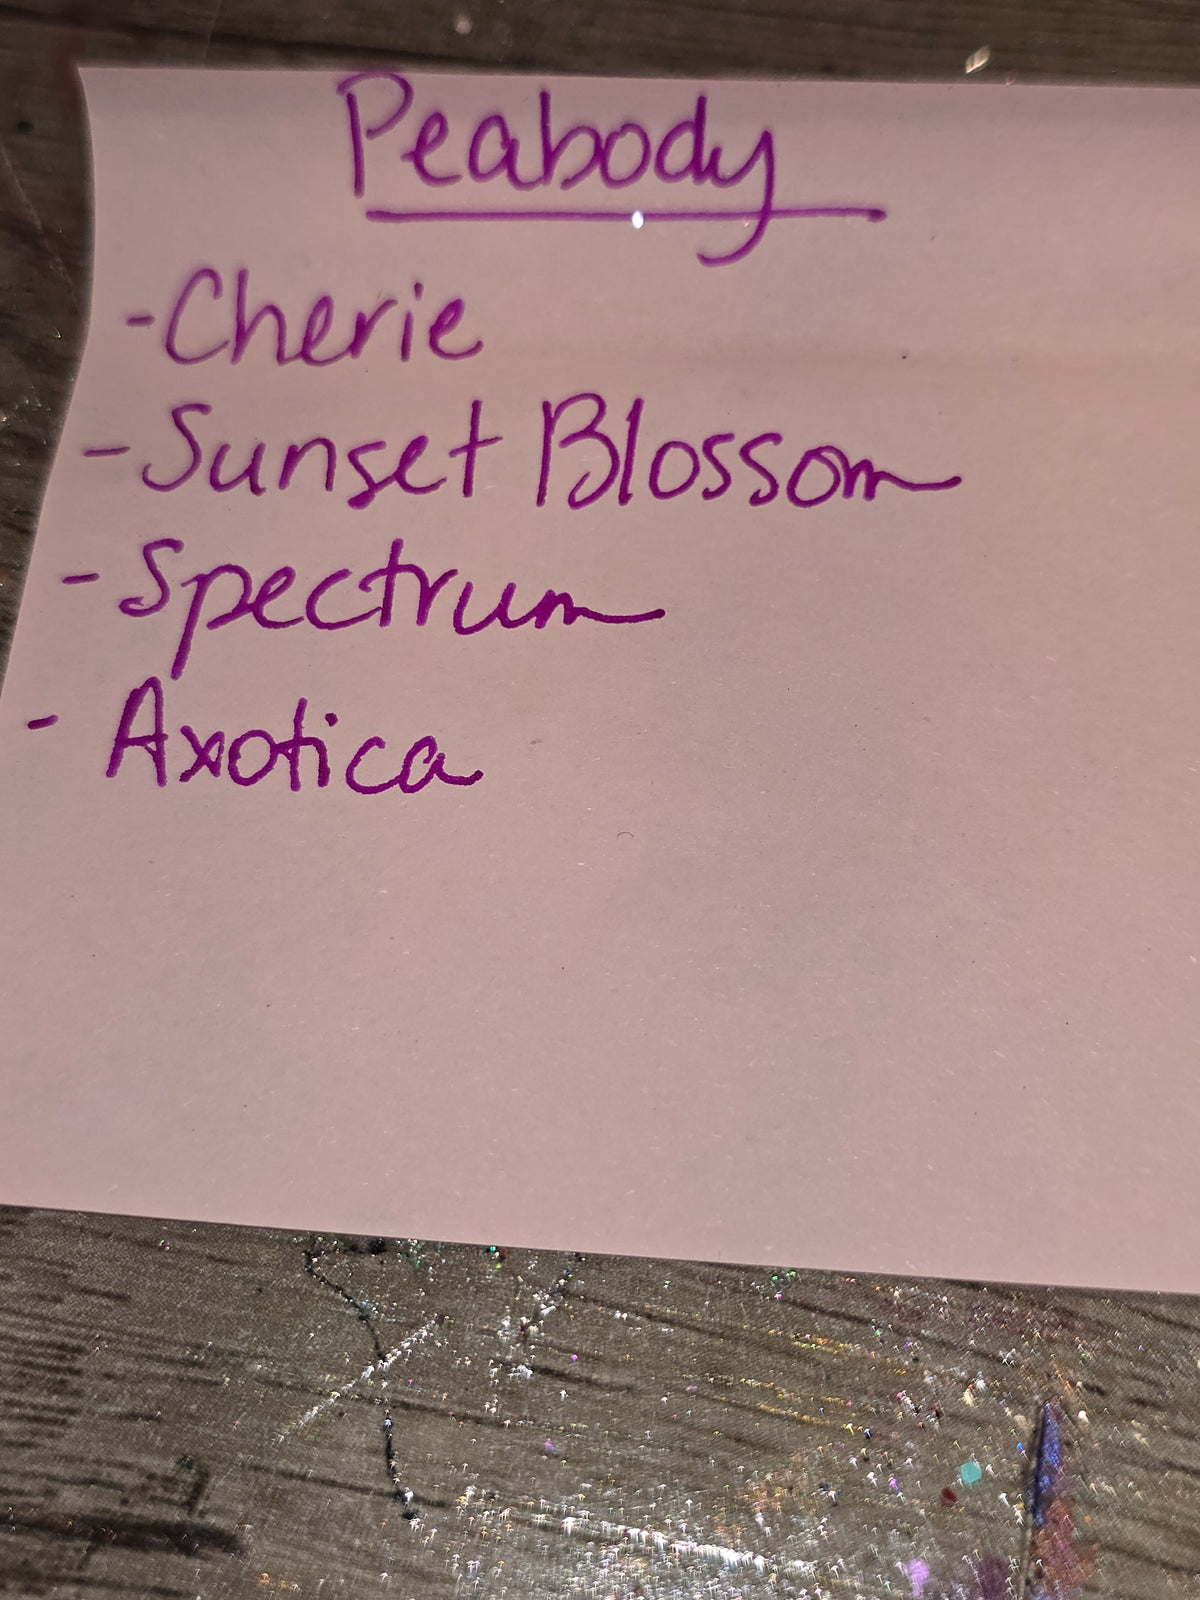 Peabody
- Cherie
- Sunset Blossom
- Spectrum
- Axotica